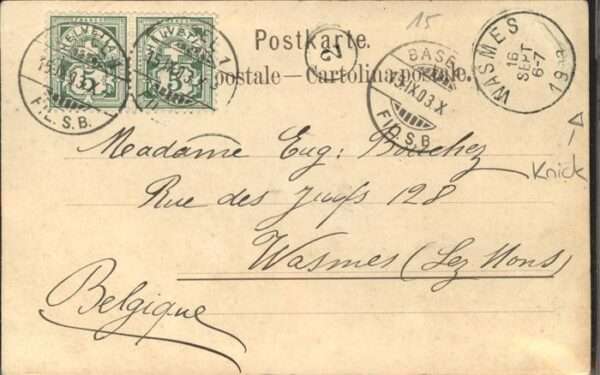 15
HELVETIA HELVETIA
5 5
15.IX.03.X
FIL.S.B.
Postkarte.
postale—Cartolina postale.
27
BASEL
15.IX.03.X
FIL.S.B.
WASMES
16
SEPT
6-7
Knick
Madame Eug: Bouchez
Rue des Juifs 128
Wasmes (Lez Mons)
Belgique